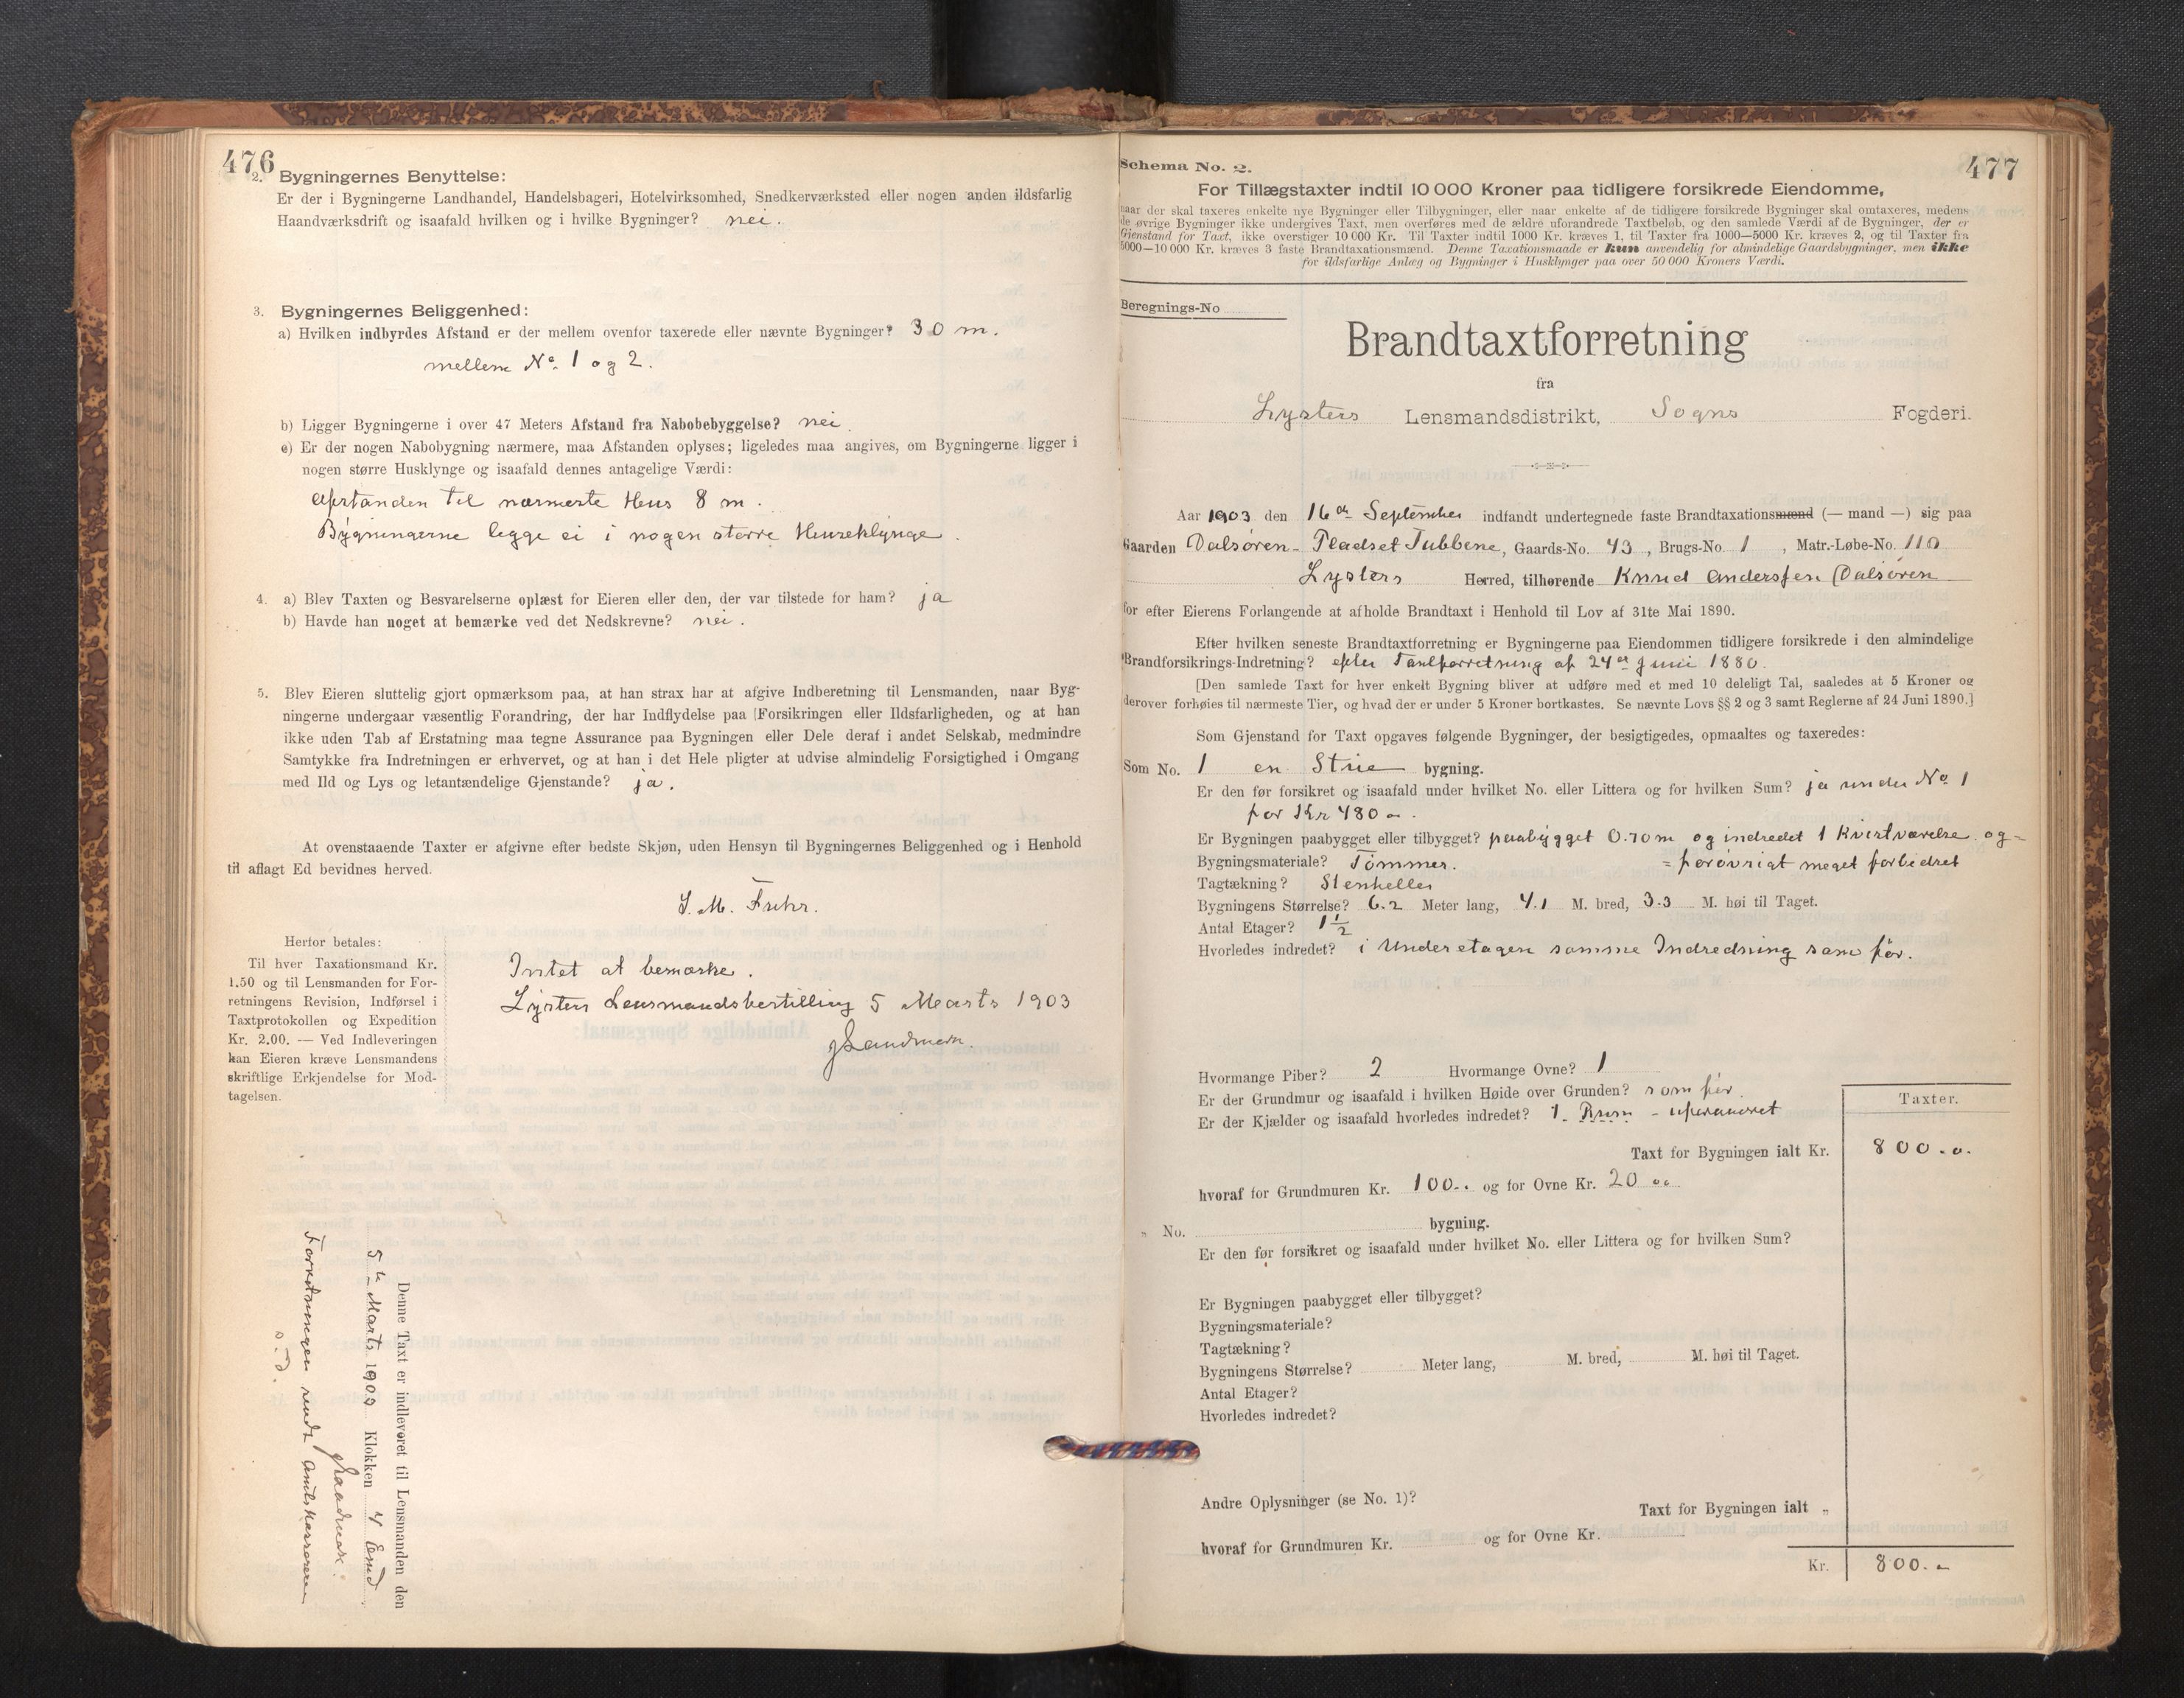 476
2. Bygningernes Benyttelse:
Er der i Bygningerne Landhandel, Handelsbageri, Hotelvirksomhed, Snedkerværksted eller nogen anden ildsfarlig
Haandværksdrift og isaafald hvilken og i hvilke Bygninger? nei.
3. Bygningernes Beliggenhed:
a) Hvilken indbyrdes Afstand er der mellem ovenfor taxerede eller nævnte Bygninger? 30 m.
mellem No. 1 og 2.
b) Ligger Bygningerne i over 47 Meters Afstand fra Nabobebyggelse? nei.
c) Er der nogen Nabobygning nærmere, maa Afstanden oplyses; ligeledes maa angives, om Bygningerne ligger i
nogen større Husklynge og isaafald dennes antagelige Værdi:
Afstanden til nærmeste Hus 8 m.
Bygningerne ligge ei i nogen større Huseklynge.
4. a) Blev Taxten og Besvarelserne oplæst for Eieren eller den, der var tilstede for ham? ja
b) Havde han noget at bemærke ved det Nedskrevne? nei.
5. Blev Eieren sluttelig gjort opmærksom paa, at han strax har at afgive Indberetning til Lensmanden, naar Byg-
ningerne undergaar væsentlig Forandring, der har Indflydelse paa Forsikringen eller Ildsfarligheden, og at han
ikke uden Tab af Erstatning maa tegne Assurance paa Bygningen eller Dele deraf i andet Selskab, medmindre
Samtykke fra Indretningen er erhvervet, og at han i det Hele pligter at udvise almindelig Forsigtighed i Omgang
med Ild og Lys og letantændelige Gjenstande? ja.
At ovenstaaende Taxter er afgivne efter bedste Skjøn, uden Hensyn til Bygningernes Beliggenhed og i Henhold
til aflagt Ed bevidnes herved.
Herfor betales:
Til hver Taxationsmand Kr.
1.50 og til Lensmanden for For-
retningens Revision, Indførsel i
Taxtprotokollen og Expedition
Kr. 2.00. — Ved Indleveringen
kan Eieren kræve Lensmandens
skriftlige Erkjendelse for Mod-
tagelsen.
Intet at bemærke.
Lysters Lensmandsbestilling 5 Marts 1903
Denne Taxt er indleveret til Lensmanden den
5te Marts 1903 Klokken 4 Emd.
Forretningen sendt Amtskassereren
s. D.
477
Schema No. 2.
For Tillægstaxter indtil 10 000 Kroner paa tidligere forsikrede Eiendomme,
naar der skal taxeres enkelte nye Bygninger eller Tilbygninger, eller naar enkelte af de tidligere forsikrede Bygninger skal omtaxeres, medens
de øvrige Bygninger ikke undergives Taxt, men overføres med de ældre uforandrede Taxtbeløb, og den samlede Værdi af de Bygninger, der er
Gjenstand for Taxt, ikke overstiger 10 000 Kr. Til Taxter indtil 1000 Kr. kræves 1, til Taxter fra 1000—5000 Kr. kræves 2, og til Taxter fra
5000—10 000 Kr. kræves 3 faste Brandtaxationsmænd. Denne Taxationsmaade er kun anvendelig for almindelige Gaardsbygninger, men ikke
for ildsfarlige Anlæg og Bygninger i Husklynger paa over 50 000 Kroners Værdi.
Beregnings-No
Brandtaxtforretning
fra
Lysters Lensmandsdistrikt, Sogns Fogderi.
Aar 1903 den 16de September indfandt undertegnede faste Brandtaxationsmænd (— mand —) sig paa
Gaarden Dalsøren - Pladset Tubbene, Gaards-No. 43, Brugs-No. 1, Matr.-Løbe-No. 110
Lysters Herred, tilhørende Knud Anderssen Dalsøren
for efter Eierens Forlangende at afholde Brandtaxt i Henhold til Lov af 31te Mai 1890.
Efter hvilken seneste Brandtaxtforretning er Bygningerne paa Eiendommen tidligere forsikrede i den almindelige
Brandforsikrings-Indretning? efter Taxtforretning af 24de Juni 1880.
[Den samlede Taxt for hver enkelt Bygning bliver at udføre med et med 10 deleligt Tal, saaledes at 5 Kroner og
derover forhøies til nærmeste Tier, og hvad der er under 5 Kroner bortkastes. Se nævnte Lovs §§ 2 og 3 samt Reglerne af 24 Juni 1890.]
Som Gjenstand for Taxt opgaves følgende Bygninger, der besigtigedes, opmaaltes og taxeredes:
Som No. 1 en Stue bygning.
Er den før forsikret og isaafald under hvilket No. eller Littera og for hvilken Sum? ja under No 1
for Kr 480 -.
Er Bygningen paabygget eller tilbygget? paabygget 0.70 m og indredet 1 Kvistværelse og =
Bygningsmateriale? Tømmer. = forøvrigt meget forbedret
Tagtækning? Stenheller
Bygningens Størrelse? 6.2 Meter lang, 4.1 M. bred, 3.3 M. høi til Taget.
Antal Etager? 1 1/2
Hvorledes indredet? i Underetagen samme Indredning som før.
Hvormange Piber? 2 Hvormange Ovne? 1
Er der Grundmur og isaafald i hvilken Høide over Grunden? som før.
Er der Kjælder og isaafald hvorledes indredet? 1. Rum - uforandret
Taxter.
Taxt for Bygningen ialt Kr. 800.-
hvoraf for Grundmuren Kr. 100.- og for Ovne Kr. 20 -
" No. bygning.
Er den før forsikret og isaafald under hvilket No. eller Littera og for hvilken Sum?
Er Bygningen paabygget eller tilbygget?
Bygningsmateriale?
Tagtækning?
Bygningens Størrelse? Meter lang, M. bred, M. høi til Taget.
Antal Etager?
Hvorledes indredet?
Andre Oplysninger (se No. 1)?
Taxt for Bygningen ialt "
hvoraf for Grundmuren Kr. og for Ovne Kr.
Kr. 800.-